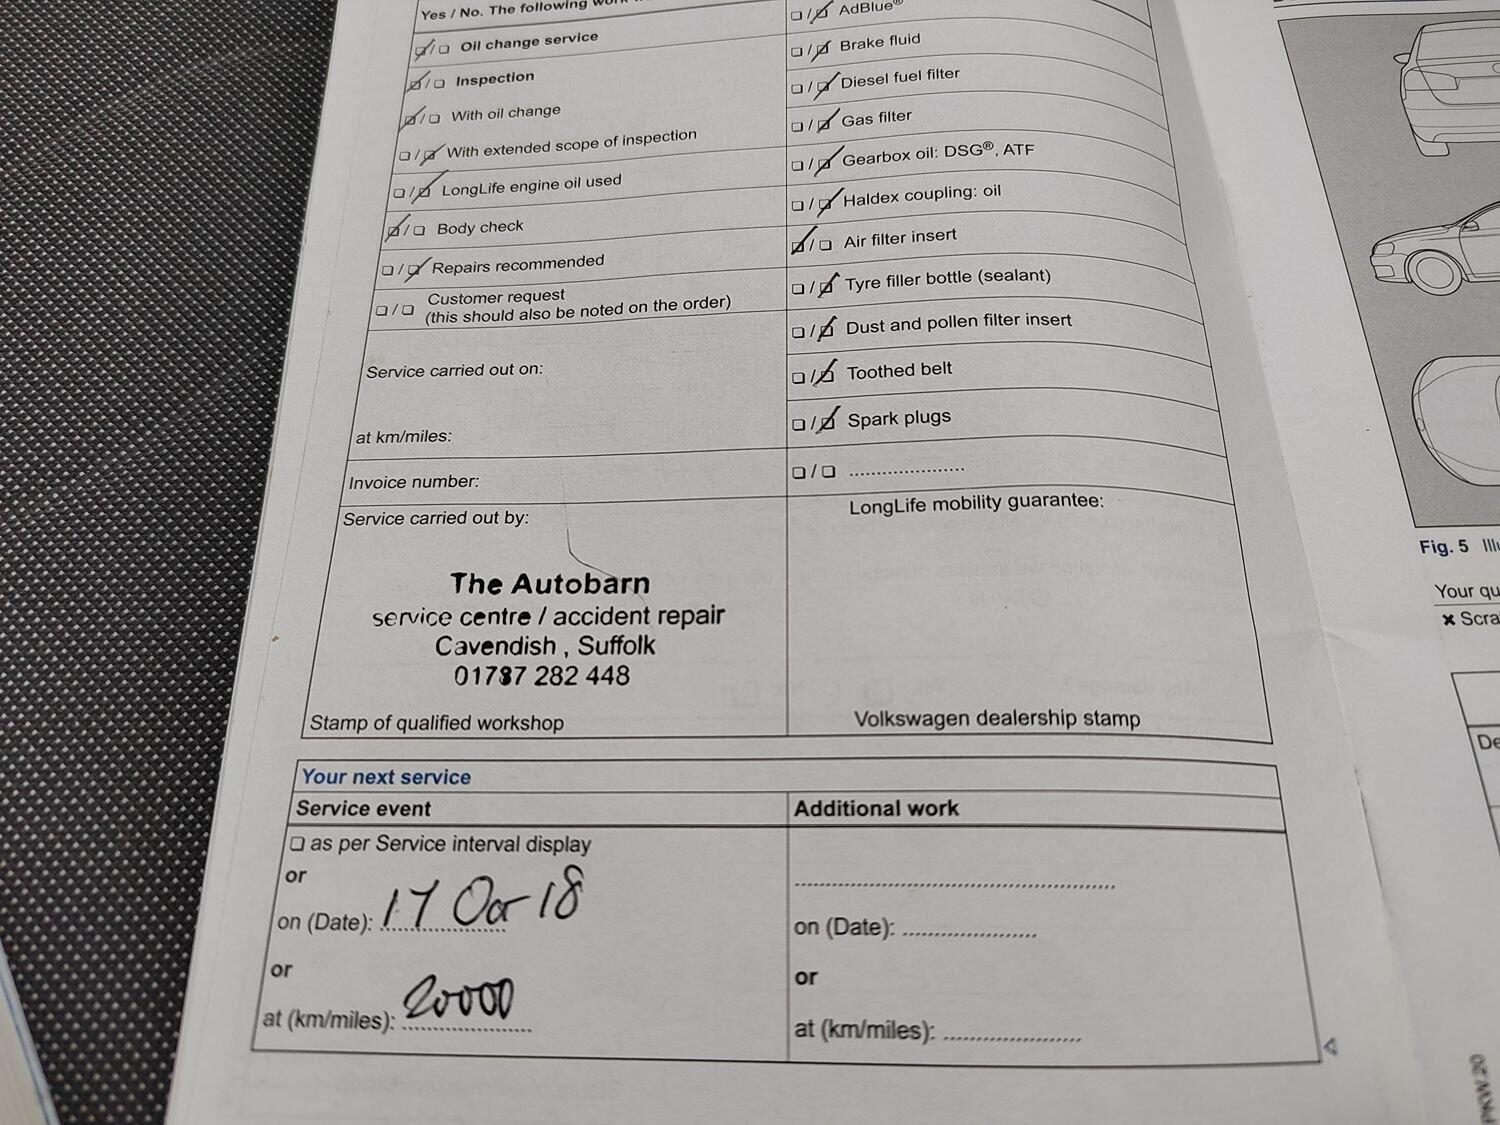 Yes / No. The following work
☑/☐ Oil change service
☑/☐ Inspection
☑/☐ With oil change
☐/☑ With extended scope of inspection
☐/☑ LongLife engine oil used
☑/☐ Body check
☐/☑ Repairs recommended
☐/☐ Customer request
(this should also be noted on the order)
Service carried out on:
at km/miles:
Invoice number:
Service carried out by:
The Autobarn
service centre / accident repair
Cavendish , Suffolk
01787 282 448
Stamp of qualified workshop
☐/☑ AdBlue®
☐/☑ Brake fluid
☐/☑ Diesel fuel filter
☐/☑ Gas filter
☐/☑ Gearbox oil: DSG®, ATF
☐/☑ Haldex coupling: oil
☑/☐ Air filter insert
☐/☑ Tyre filler bottle (sealant)
☐/☑ Dust and pollen filter insert
☐/☑ Toothed belt
☐/☑ Spark plugs
☐/☐ ......................
LongLife mobility guarantee:
Volkswagen dealership stamp
Your next service
Service event
☐ as per Service interval display
or
on (Date): 17 Oct 18
or
at (km/miles): 20000
Additional work
on (Date): ......................
or
at (km/miles): ......................
Fig. 5
Your qu
× Scra
De